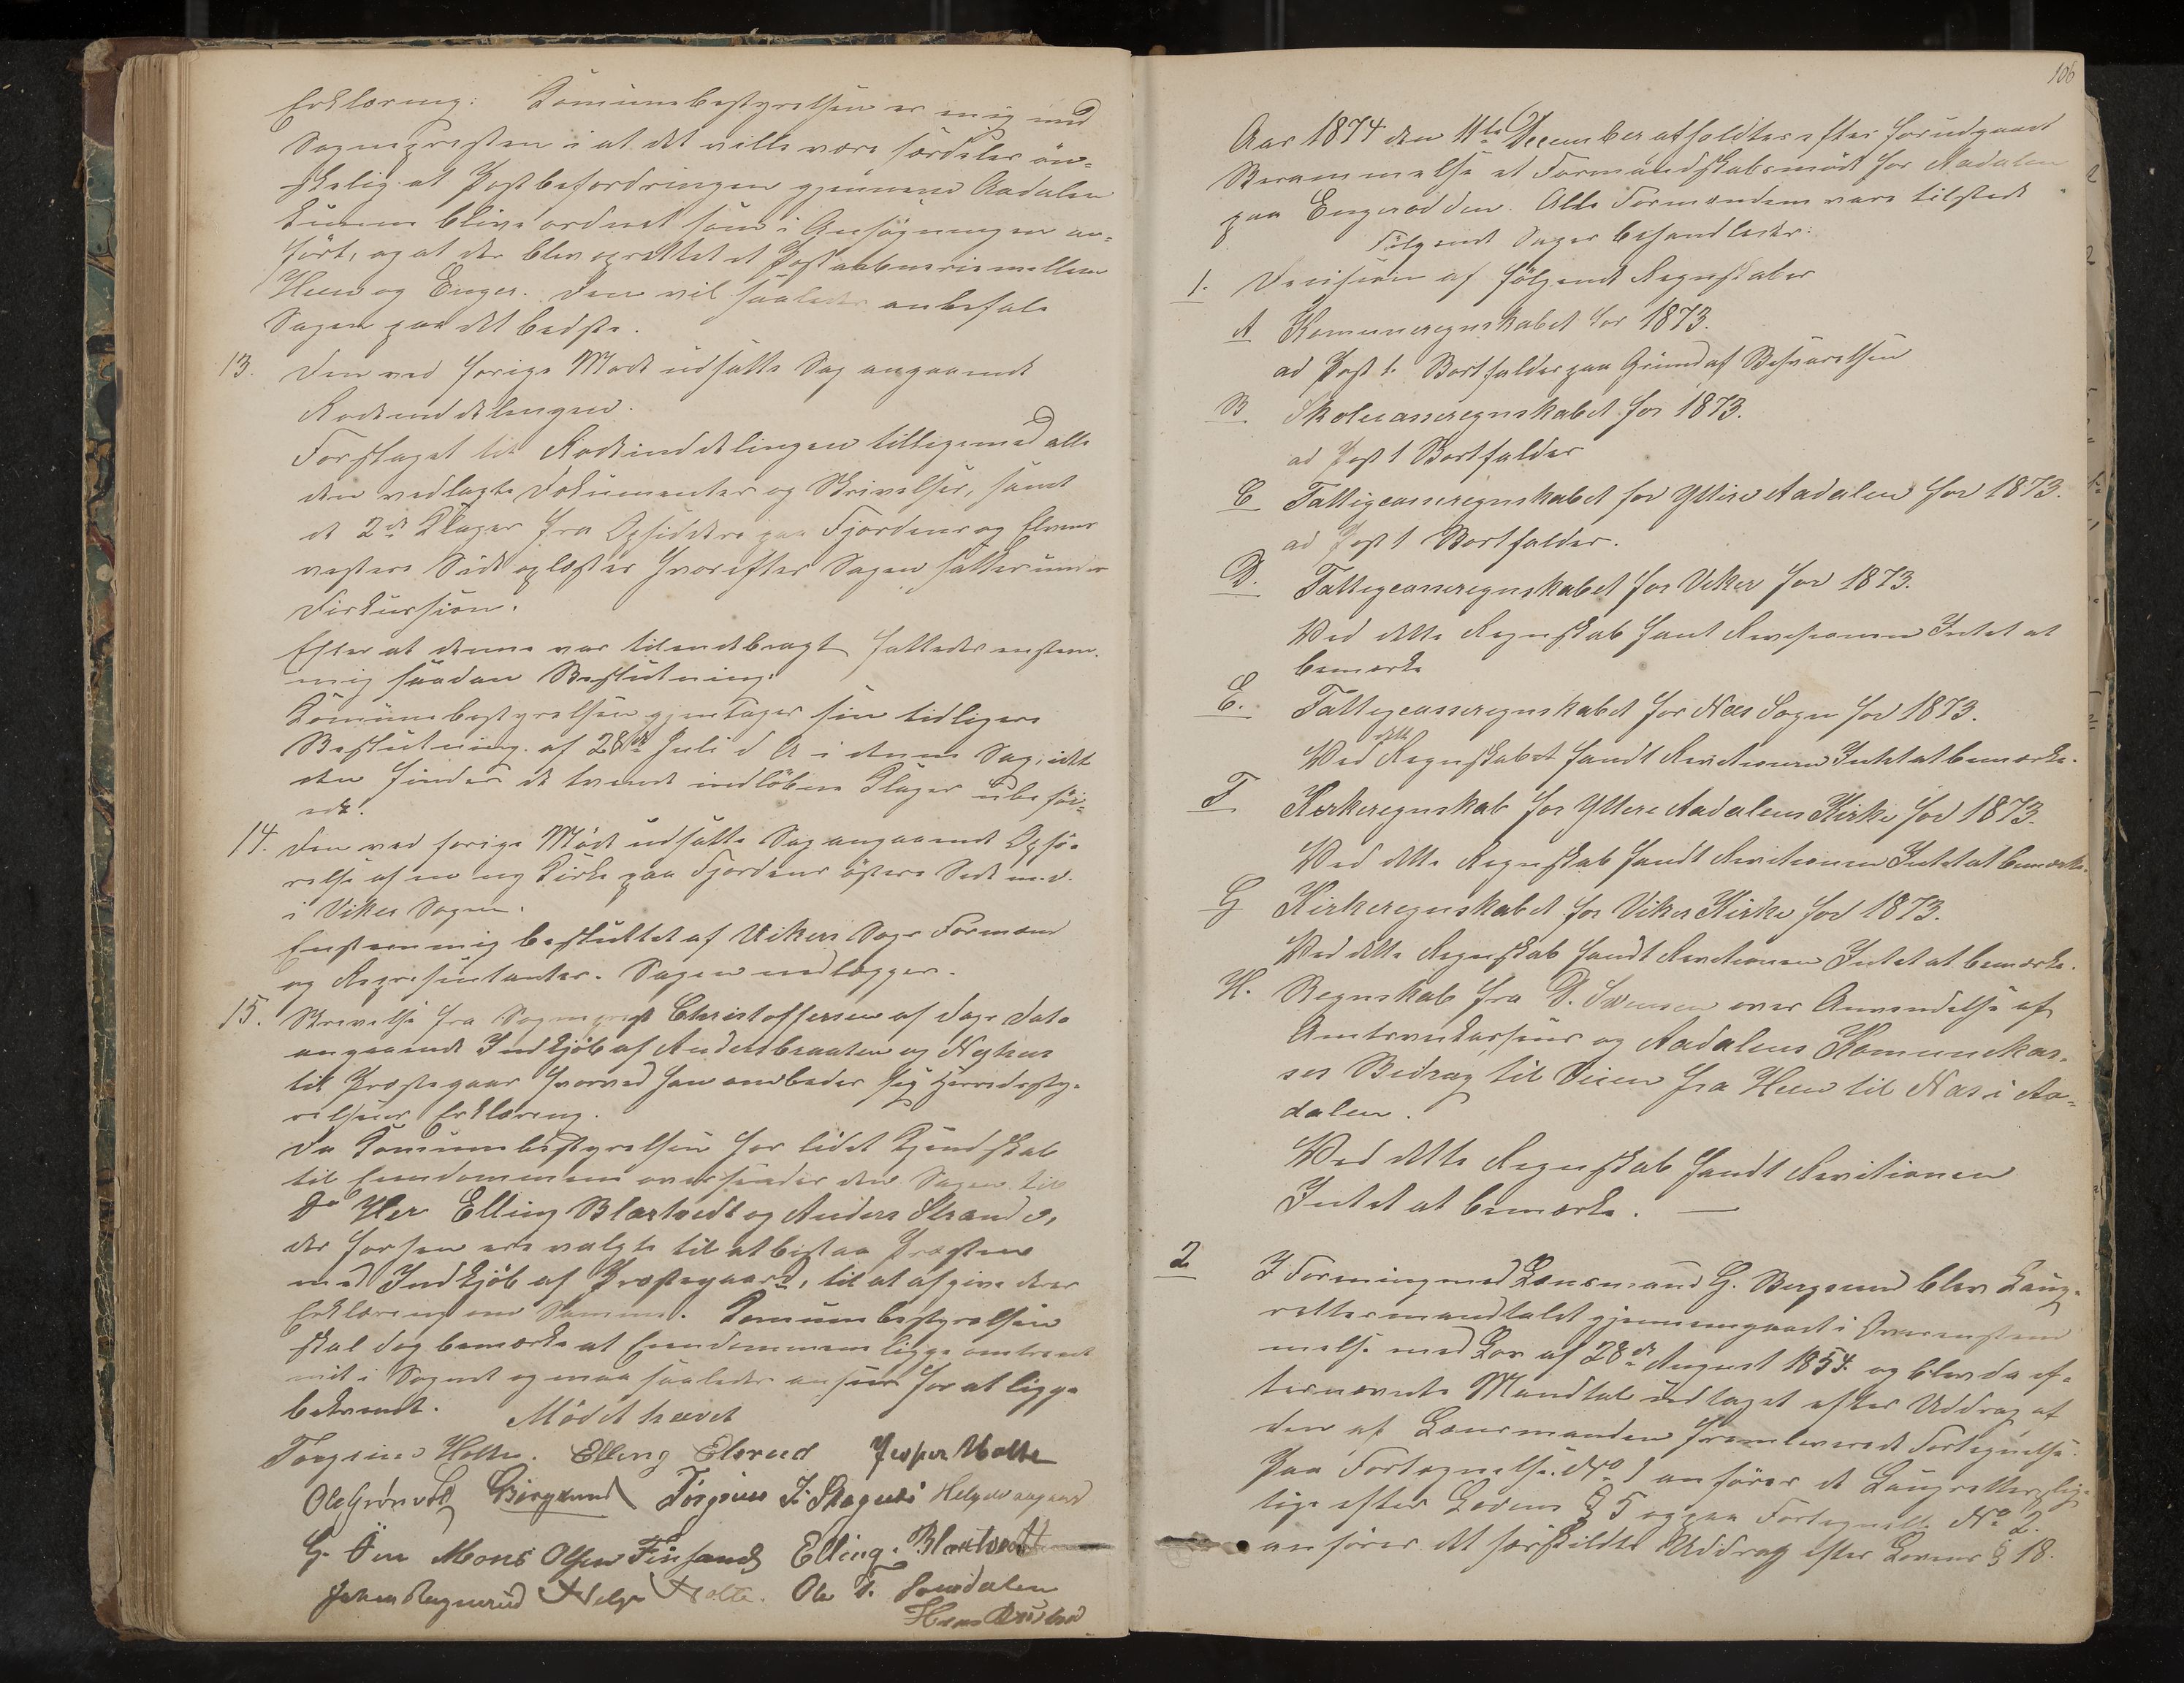 Erklæring: Komunebestyrelsen er enig med
Sognepresten i at det ville være særdeles øn-
skelig at Postbefordringen gjennem Aadalen
kunne blive ordnet som i Ansøgningen an-
ført, og at der blev oprettet et Postaabneri mellem
Heen og Enger. Den vil saaledes anbefale
Sagen paa det bedste.
13. Den ved forige Møde udsatte Sag angaaende
Rodeinddelingen.
Forslaget til Rodeinddelingen tilligemed alle
den vedlagte Dokumenter og Skrivelser, samt
de 2de Klager fra Opsiddere paa Fjordens og Elvens
vestre Side oplæstes hvorefter Sagen sattes under
Diskussion.
Efter at denne var tilendebragt fattedes enstem-
mig saadan Beslutning:
Komunebestyrelsen gjentager sin tidligere
Beslutning af 28de Juli d A i denne Sag, idet
den finder de tvende indløbne Klager ubeføi-
ede.
14. Den ved forige Møde udsatte Sag angaaende Opfø-
relse af en ny Kirke paa Fjordens østere Side m.v.
i Viker Sogn.
Enstemmig besluttet af Vikers Sogs Formænd
og Repræsentanter. Sagen nedlægges.
15. Skrivelse fra Sognepræst Christoffersen af Dags Dato
angaaende Indkjøb af Andersbraaten og Nyhus
til Præstegaar hvorved han ombeder sig Herredssty-
relsens Erklæring.
Da Komunebestyrelsen har lidet Kjendskab
til Eiendommene oversender den Sagen til
D'Hrr Elling Blaktvedt og Anders Strande,
der forhen ere valgte til at bistaa Præsten
med Indkjøb af Præstegaard, til at afgive deres
Erklæring om Samme. Komunebestyrelsen
skal dog bemærke at Eiendommene ligge omtrent
mit i Sognet og maa saaledes ansees for at ligge
bekvemt. Mødet hævet
Torgrim Holte. Elling Elsrud Jesper Holte
Ole Grønvold GBergsund Torgrim T. Skagnæs Helge
G. Øen Mons Olsen Finsand Elling Blaktvedt
Johan Ragnerud Helge Holte. Ole T. Somdalen
Hans
106
Aar 1874 den 11te December afholdtes efter forudgaaet
Berammelse et Formandskabsmøde for Aadalen
paa Engerodden. Alle Formændene vare tilstede
Følgende Sager behandledes:
1. Decision af følgende Regnskaber
A Komuneregnskabet for 1873.
ad Post 1. Bortfalder paa Grund af Besvarelsen
B Skolecasseregnskabet for 1873.
ad Post 1 Bortfalder
C Fattigcasseregnskabet for Yttre Aadalen for 1873.
ad Post 1 Bortfalder.
D. Fattigcasseregnskabet for Viker for 1873.
Ved dette Regnskab fant Revisionen Intet at
bemærke
E. Fattigcasseregnskabet for Næs Sogn for 1873.
Ved dette Regnskabet fandt Revitionen Intet at bemærke.
F Kirkeregnskab for Yttere Aadalens Kirke for 1873.
Ved dette Regnskab fandt Revitionen Intet at bemærke.
G Kirkeregnskabet for Viker Kirke for 1873.
Ved dette Regnskab fandt Revitionen Intet at bemærke.
H. Regnskab fra D. Svensen over Anvendelse af
Amtsveikassens og Aadalens Komunekas-
ses Bedrag til Veien fra Heen til Næs i Aa-
dalen.
Ved dette Regnskab fandt Revitionen
Intet at bemærke. —
2 I Forening med Lensmand G. Bergsund blev Laug-
rettesmandtalet gjennemgaaet i Overenstem
melse med Lov af 28de August 1854. og blev da ef-
ternævnte Mandtal indtaget efter Uddrag af
den af Lensmanden fremleverede Fortegnelse.
Paa Fortegnelse No 1 anføres de Laugrettespligt-
tige efter Lovens § 5 og paa Fortegnelse No 2.
anføres det særskildte Uddrag efter Lovens § 18.